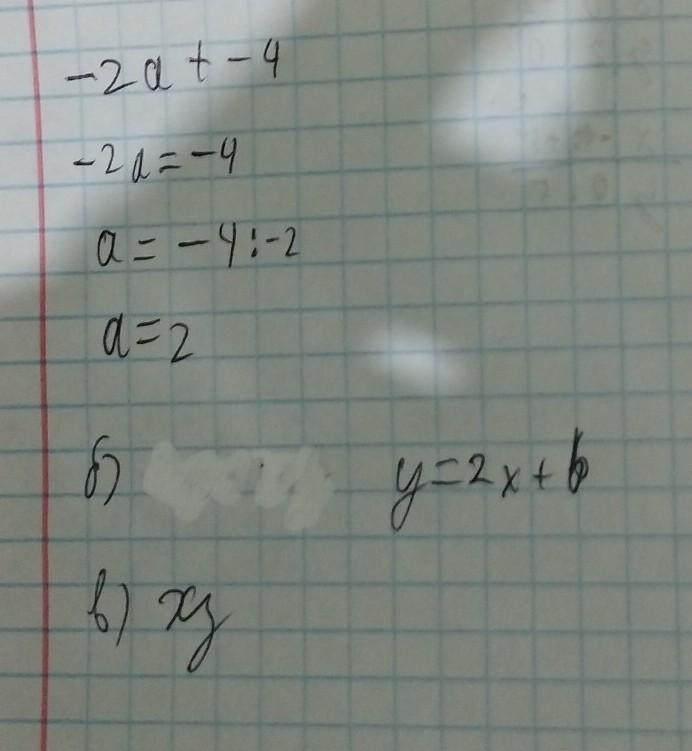 -2a + -4
-2a = -4
a = -4 : -2
a = 2
б) y = 2x + b
в) xy